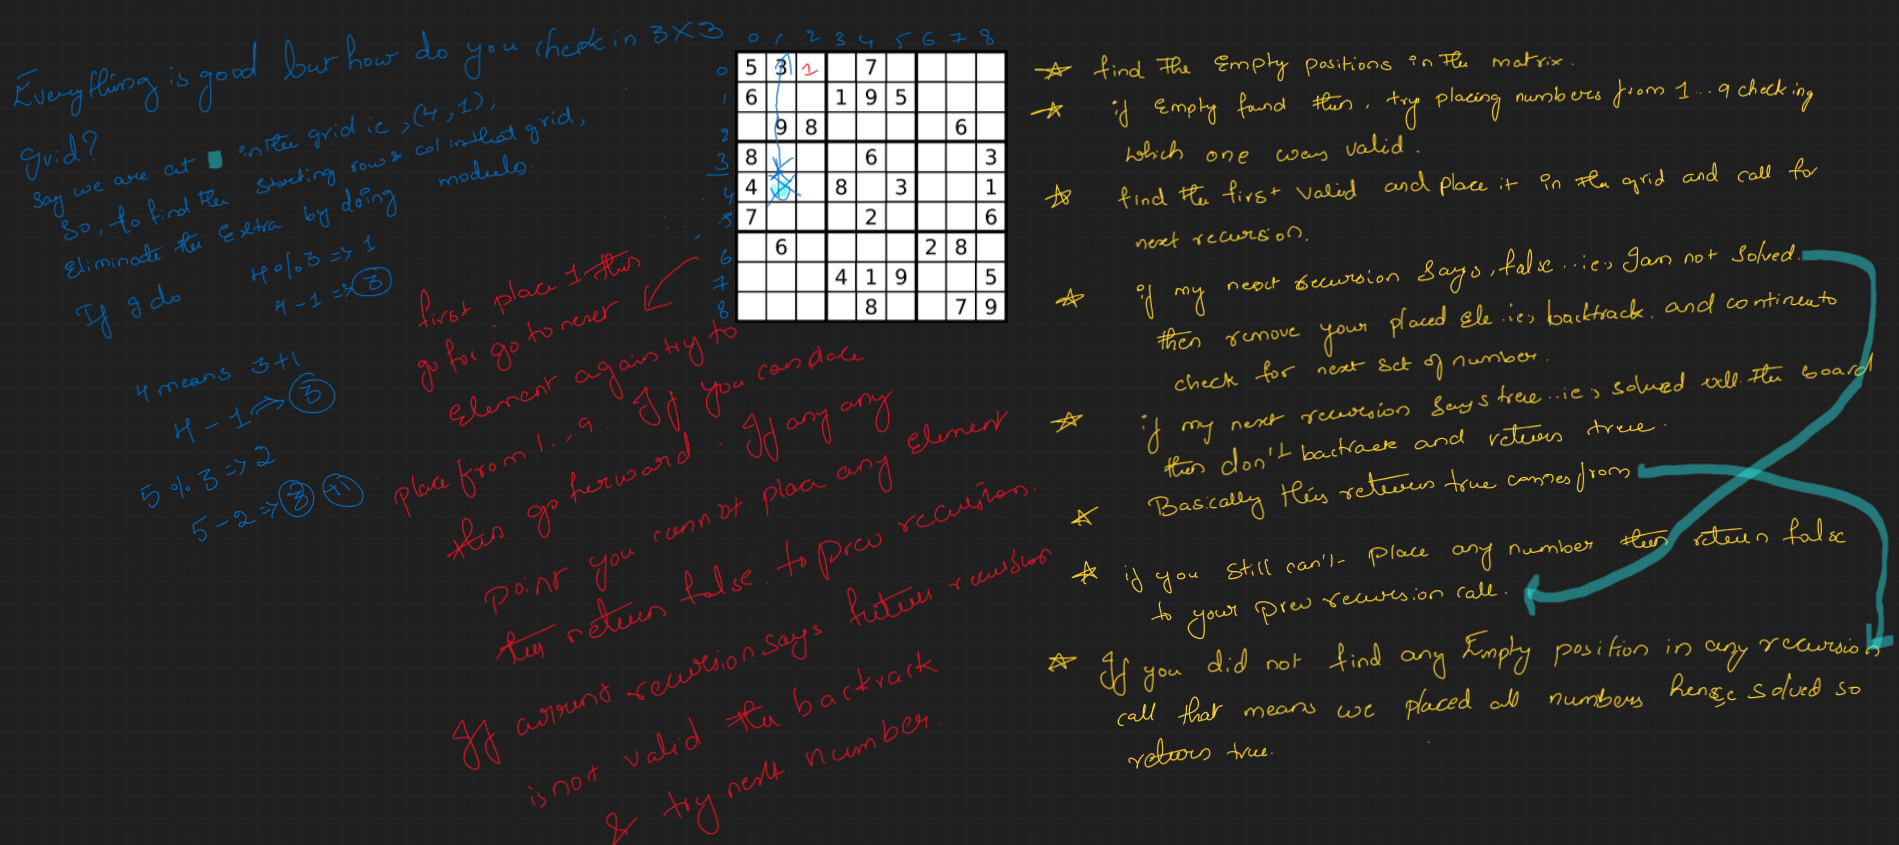 Everything is good but how do you check in 3X3
grid?
Say we are at in the grid i.e., (4,1),
So, to find the starting row & col in that grid,
Eliminate the Extra by doing modulo.
If I do 4%3 => 1
4-1 => 3
4 means 3+1
4-1 => 3
5%3 => 2
5-2 => 3 +1
first place 1 then
go for go to next
Element again try to
place from 1...9. If you can place
then go forward. If any any
point you cannot place any element
then return false. to prev recursion.
If current recursion says return recursion
is not valid then backtrack
& try next number.
0 1 2 3 4 5 6 7 8
0 5 3 1 7
1 6 1 9 5
2 9 8 6
3 8 6 3
4 4 8 3 1
5 7 2 6
6 6 2 8
7 4 1 9 5
8 8 7 9
find the Empty positions in the matrix.
if Empty found then, try placing numbers from 1...9 checking
which one was valid.
find the first valid and place it in the grid and call for
next recursion.
if my next recursion says, false...i.e., I am not solved.
then remove your placed Ele i.e., backtrack. and continue to
check for next set of number.
if my next recursion says true...i.e., solved all the board
then don't backtrack and return true.
Basically this return true comes from
if you still can't place any number then return false
to your prev recursion call.
If you did not find any Empty position in any recursion
call that means we placed all numbers hence solved so
return true.